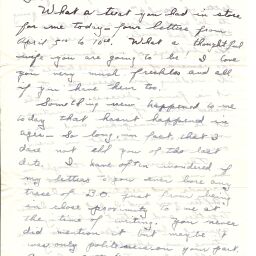 What a treat you had in store
for me today - four letters from
April 5th to 10th. What a thoughtful
wife you are going to be. I love
you very much freckles and all
if you have them too.
Something new happened to me
today that hasn't happened in
ages - so long, in fact, that I
dare not tell you of the last
date. I have often wondered if
my letters to you ever bore any
trace of B.O. just from being
in close proximity to me at
the time of writing. You never
did mention it but maybe it
was only politeness on your part.